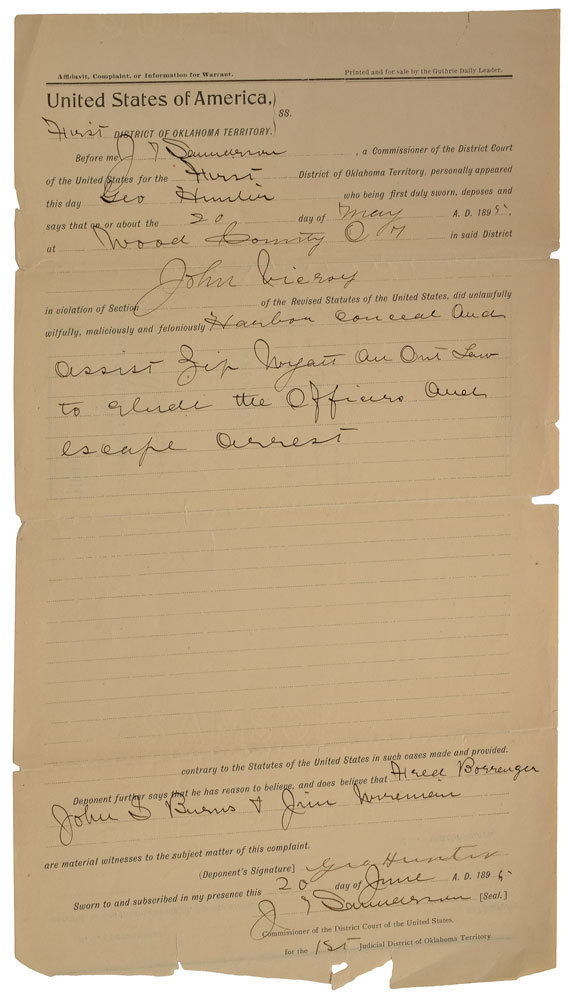 Affidavit, Complaint, or Information for Warrant. Printed and for sale by the Guthrie Daily Leader.
United States of America,
SS.
First DISTRICT OF OKLAHOMA TERRITORY.
Before me J T Saunderson, a Commissioner of the District Court
of the United States for the First District of Oklahoma Territory, personally appeared
this day Geo Hunter who being first duly sworn, deposes and
says that on or about the 20 day of May A. D. 1895.
at Wood County O T in said District
John
in violation of Section of the Revised Statutes of the United States, did unlawfully
wilfully, maliciously and feloniously Harbor conceal And
assist Zip Wyatt An Out Law
to elude the Officers And
escape arrest
contrary to the Statutes of the United States in such cases made and provided.
Deponent further says that he has reason to believe, and does believe that Fred Borrenger
John D Burns & Jim
are material witnesses to the subject matter of this complaint.
(Deponent's Signature] Geo Hunter
Sworn to and subscribed in my presence this 20 day of June A. D. 1895
J T Saunderson [Seal.]
Commissioner of the District Court of the United States.
for the 1st Judicial District of Oklahoma Territory